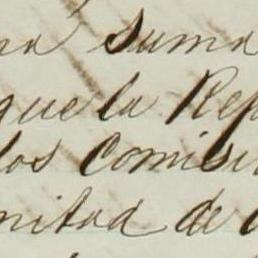 na suma
que la Rep
los Comisi
mitad de